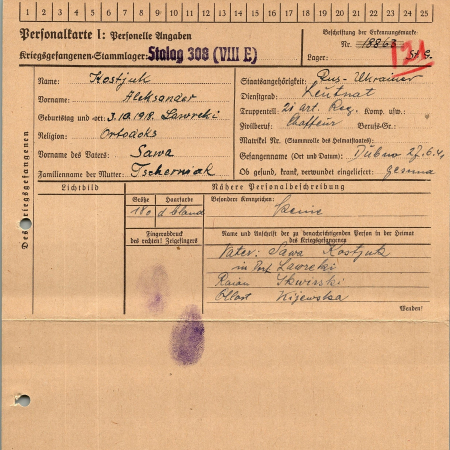 1 2 3 4 5 6 7 8 9 10 11 12 13 14 15 16 17 18 19 20 21 22 23 24 25
Personalkarte I: Personelle Angaben
Kriegsgefangenen-Stammlager: Stalag 308 (VIII E)
Beschriftung der Erkennungsmarke
Nr. 18863
Lager:
Des Kriegsgefangenen
Name: Kostjuk
Vorname: Aleksander
Geburtstag und -ort: 3.10.1918. Lawreki
Religion: Ortodoks
Vorname des Vaters: Sawa
Familienname der Mutter: Tscherniak
Staatsangehörigkeit: Rus-Ukrainer
Dienstgrad: Leutnat
Truppenteil: 21 art. Reg. Komp. usw.:
Zivilberuf: Chauffeur Berufs-Gr.:
Matrikel Nr. (Stammrolle des Heimatstaates):
Gefangennahme (Ort und Datum): Dubno 27.6.41
Ob gesund, krank, verwundet eingeliefert:
Lichtbild
Nähere Personalbeschreibung
Größe Haarfarbe
180 d bland
Besondere Kennzeichen: Keine
Fingerabdruck
des rechten! Zeigefingers
Name und Anschrift der zu benachrichtigenden Person in der Heimat
des Kriegsgefangenen
Vater: Sawa Kostjuk
in Lawreki
Raion Skwirski
Oblast Kijewska
Wenden!